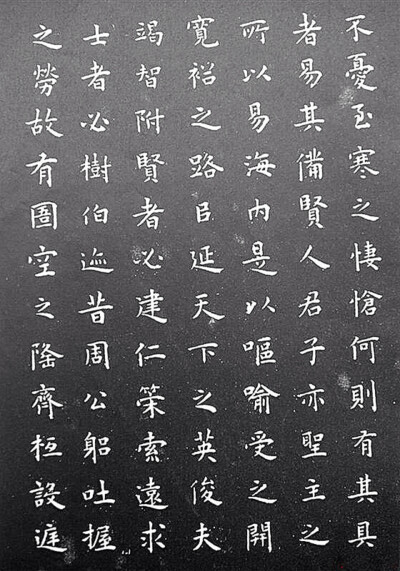 不憂至寒之悽愴何則有其具
者易其備賢人君子亦聖主之
所以易海內是以嘔喻受之開
寬裕之路㠯延天下之英俊夫
竭智附賢者必建仁策索遠求
士者必樹伯迹昔周公躳吐握
之勞故有圄空之隆齊桓設庭